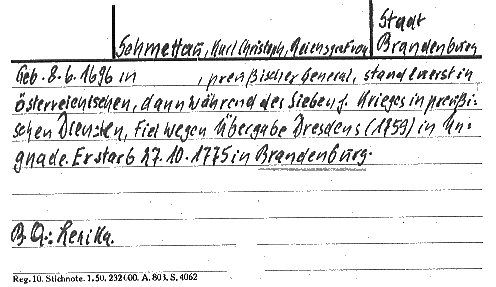 Staat
Schmettau, Karl Christoph, Reichsgraf von Brandenburg
Geb. 8.6.1696 in , preußischer General, stand zuerst in
österreichischen, dann während des Siebenj. Krieges in preußi-
schen Diensten, fiel wegen Übergabe Dresdens (1759) in Un-
gnade. Er starb 27.10.1775 in Brandenburg.
B.Q.: Lexika.
Reg. 10. Stichnote. 1.50. 232000. A. 803. S. 4062